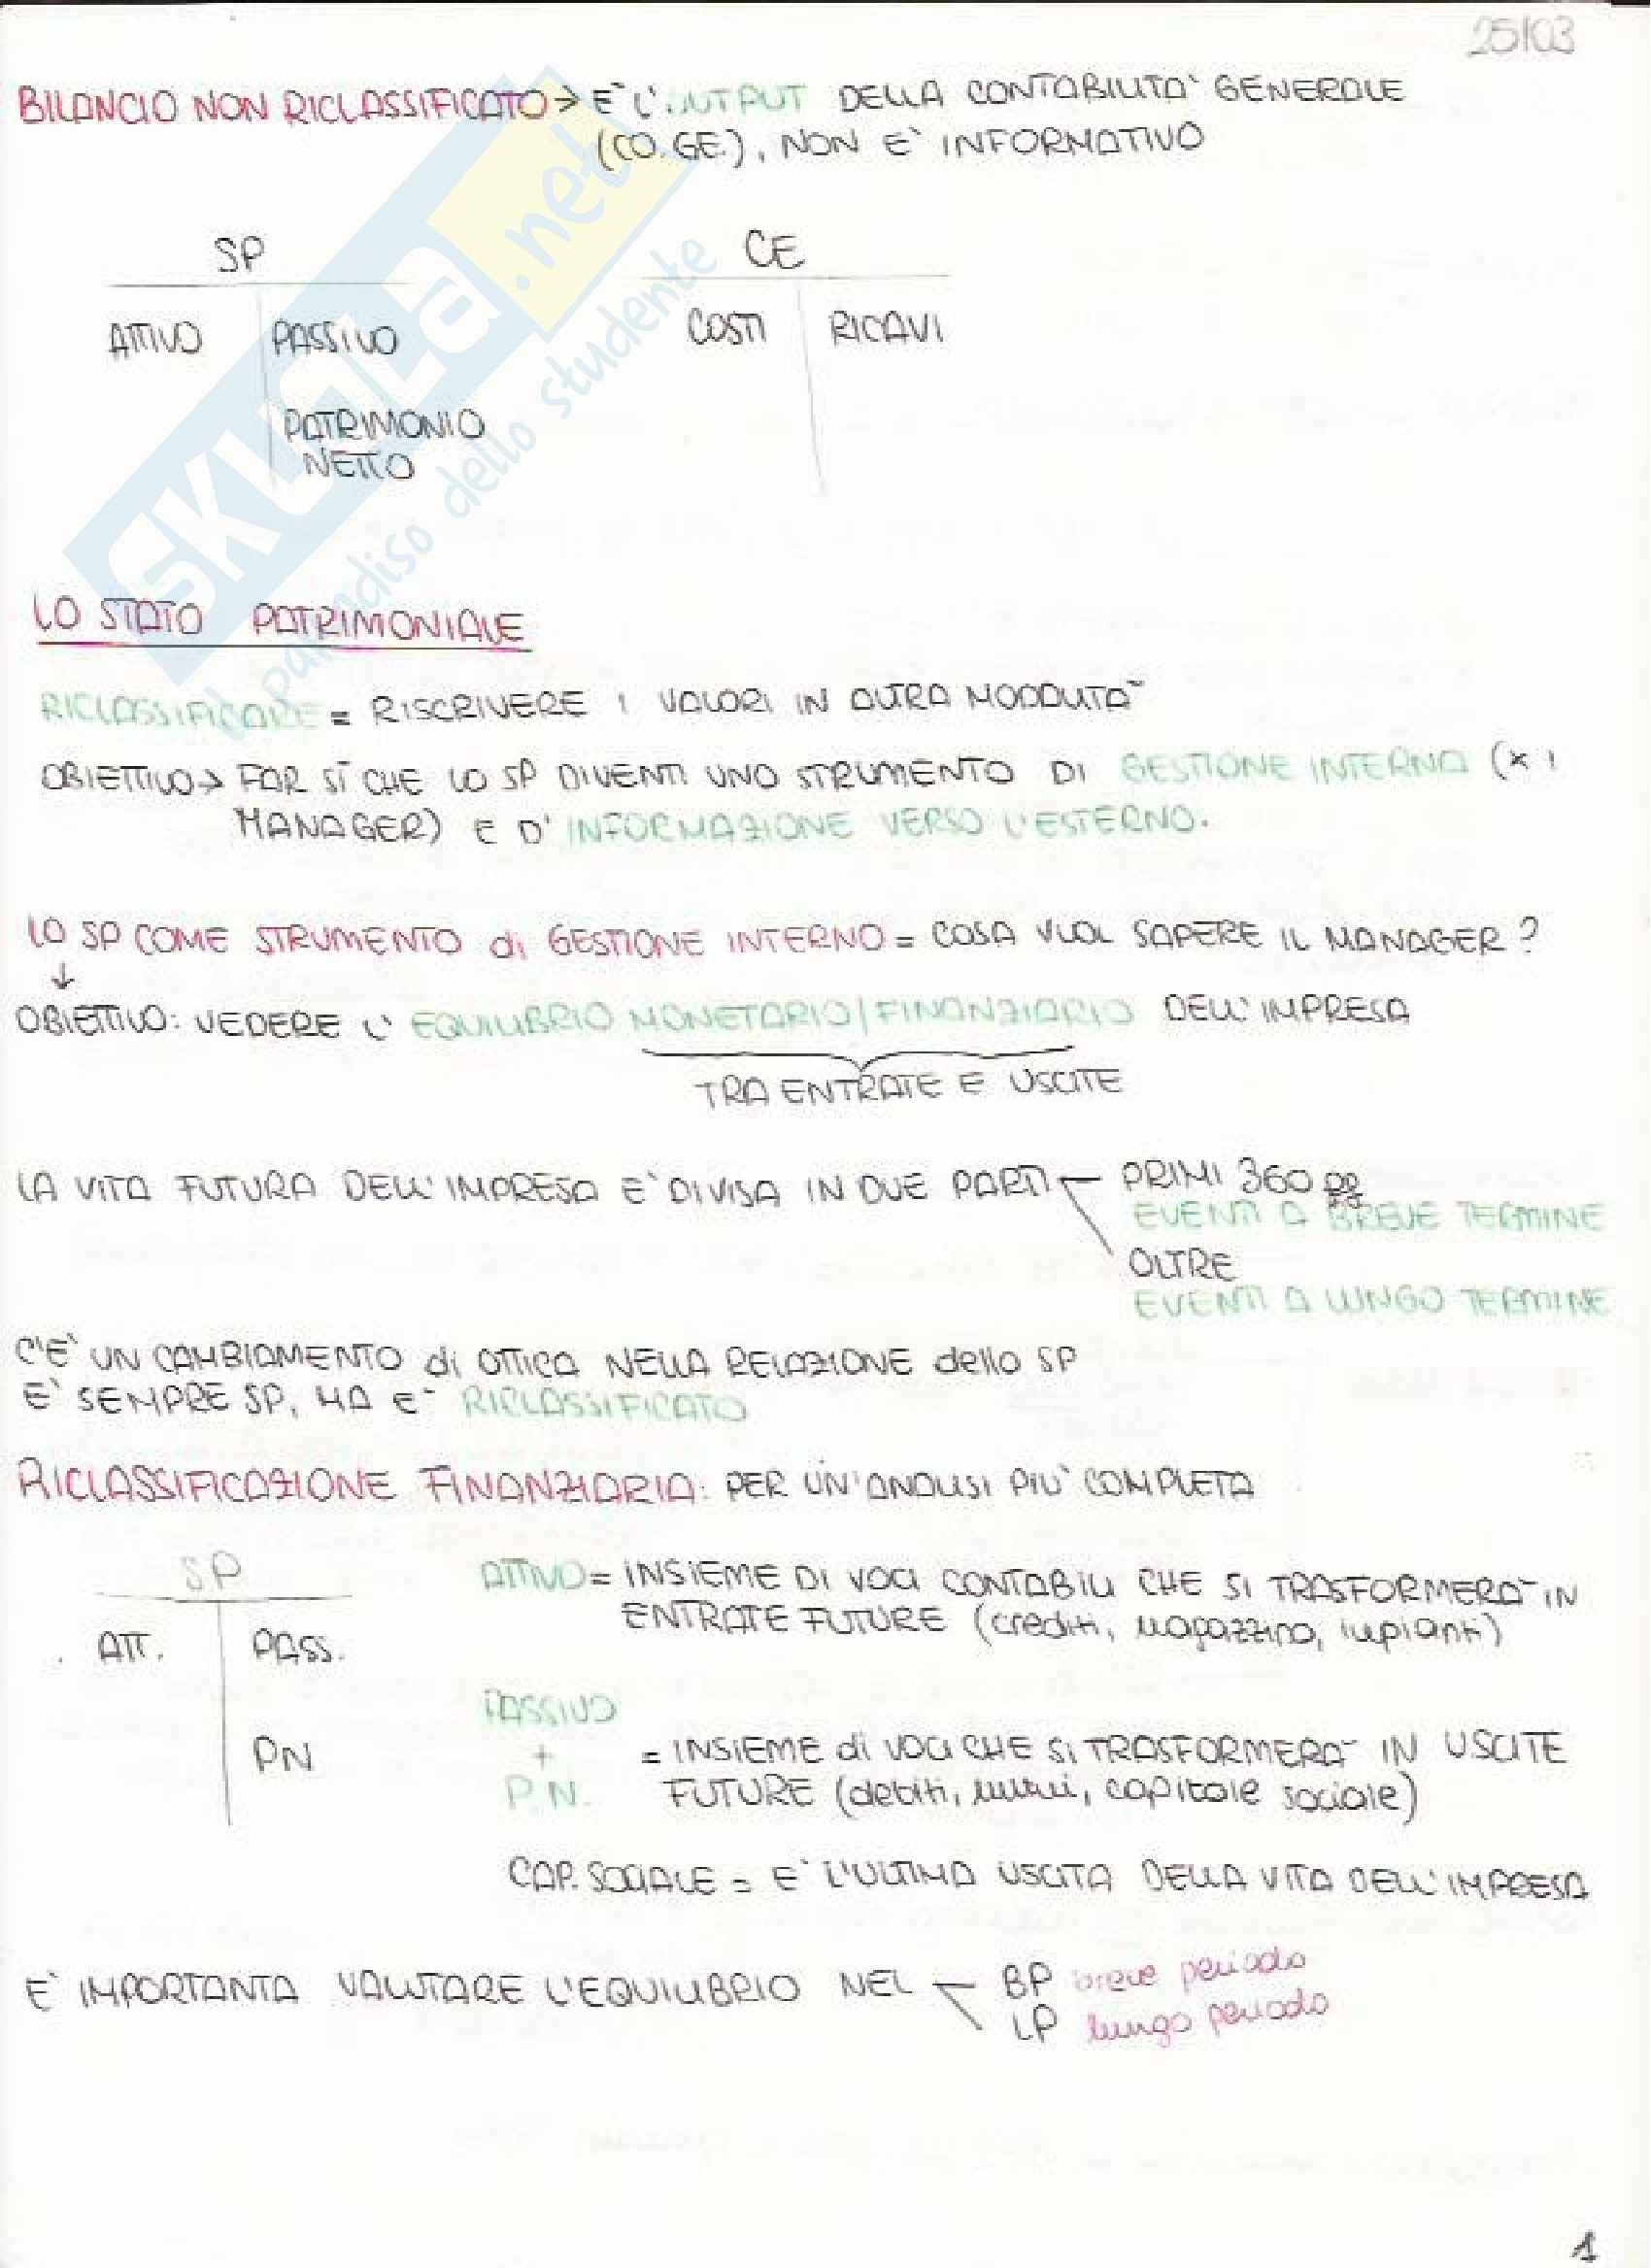 25/03
BILANCIO NON RICLASSIFICATO → E' L'OUTPUT DELLA CONTABILITA' GENERALE
(CO.GE.), NON E' INFORMATIVO
SP
CE
ATTIVO PASSIVO
COSTI RICAVI
PATRIMONIO
NETTO
SKUOLA.net
il paradiso dello studente
LO STATO PATRIMONIALE
RICLASSIFICARE = RISCRIVERE I VALORI IN ALTRA MODALITA'
OBIETTIVO → FAR SÌ CHE LO SP DIVENTI UNO STRUMENTO DI GESTIONE INTERNA (x i
MANAGER) E D'INFORMAZIONE VERSO L'ESTERNO.
LO SP COME STRUMENTO di GESTIONE INTERNO = COSA VUOL SAPERE IL MANAGER?
↓
OBIETTIVO: VEDERE L'EQUILIBRIO MONETARIO/FINANZIARIO DELL'IMPRESA
TRA ENTRATE E USCITE
LA VITA FUTURA DELL'IMPRESA E' DIVISA IN DUE PARTI PRIMI 360 gg
EVENTI A BREVE TERMINE
OLTRE
EVENTI A LUNGO TERMINE
C'E' UN CAMBIAMENTO di OTTICA NELLA RELAZIONE dello SP
E' SEMPRE SP, MA E' RICLASSIFICATO
RICLASSIFICAZIONE FINANZIARIA: PER UN'ANALISI PIU' COMPLETA
SP
ATT. PASS.
PN
ATTIVO = INSIEME DI VOCI CONTABILI CHE SI TRASFORMERA' IN
ENTRATE FUTURE (crediti, magazzino, impianti)
PASSIVO
+
P.N.
= INSIEME di VOCI CHE SI TRASFORMERA' IN USCITE
FUTURE (debiti, mutui, capitale sociale)
CAP. SOCIALE = E' L'ULTIMA USCITA DELLA VITA DELL'IMPRESA
E' IMPORTANTA VALUTARE L'EQUILIBRIO NEL BP breve periodo
LP lungo periodo
1